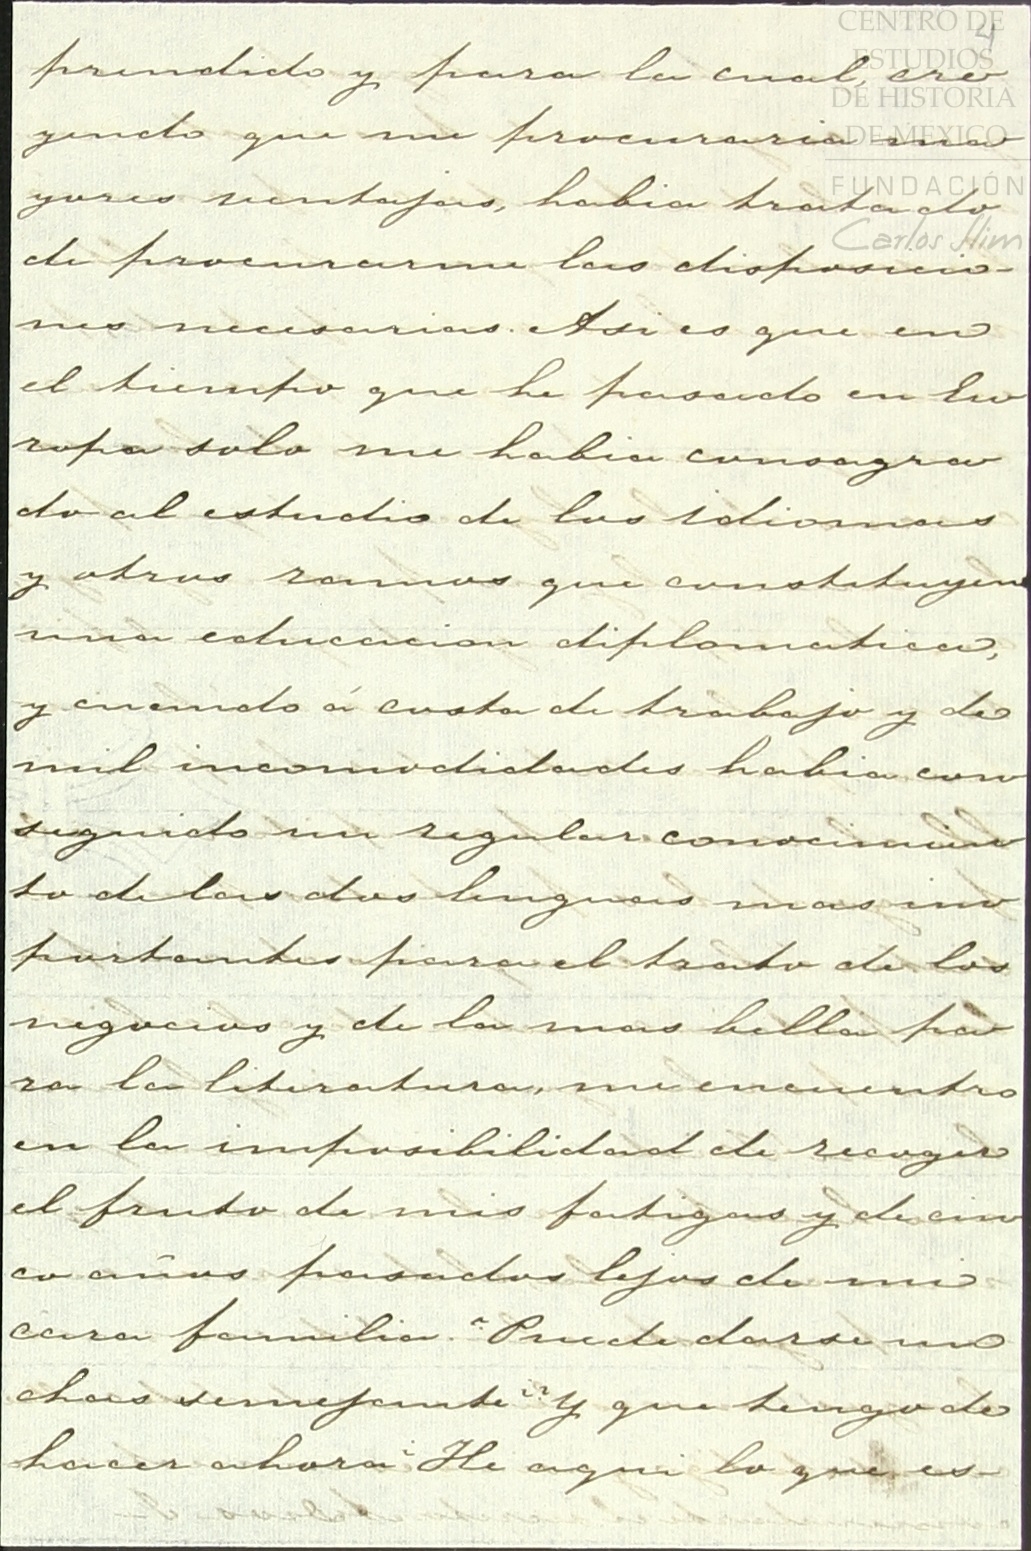 4
CENTRO DE
ESTUDIOS
DE HISTORIA
DE MEXICO
FUNDACIÓN
Carlos Slim
prendido y para la cual, cre
yendo que me procuraria ma
yores ventajas, habia tratado
de procurarme las disposicio-
nes necesarias. Asi es que en
el tiempo que he pasado en Eu
ropa solo me habia consagra
do al estudio de los idiomas
y otros ramos que constituyen
una educacion diplomatica,
y cuando á costa de trabajo y de
mil incomodidades habia con
seguido un regular conocimien
to de las dos lenguas mas im
portantes para el trato de los
negocios y de la mas bella pa
ra la literatura, me encuentro
en la imposibilidad de recoger
el fruto de mis fatigas y de cin
co años pasados lejos de mi
cara familia. Puede darse un
chas semejante? Y que tengo de
hacer ahora? He aqui lo que es-